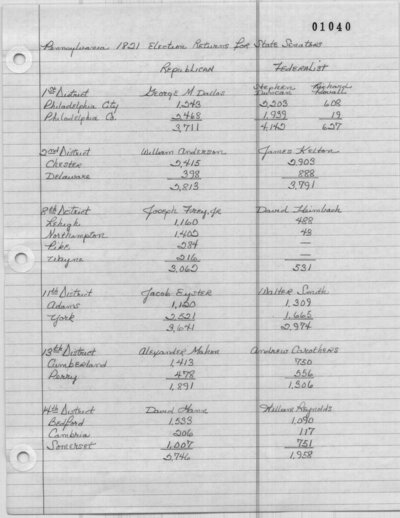 01040
Pennsylvania 1821 Election Returns For State Senators
Republican Federalist
1st District George M Dallas Stephen Duncan Richard
Philadelphia City 1,243 2,203 608
Philadelphia Co. 2,468 1,939 19
3,711 4,142 627
2nd District William Anderson James Kelton
Chester 2,415 2,903
Delaware 398 888
2,813 3,791
8th District Joseph Frey, Jr David Heimbach
Lehigh 1,160 488
Northampton 1,402 43
Pike 284 —
Wayne 216 —
3,062 531
11th District Jacob Eyster Walter Smith
Adams 1,120 1,309
York 2,521 1,665
3,641 2,974
13th District Alexander Mahon Andrew Carothers
Cumberland 1,413 750
Perry 478 556
1,891 1,306
14th District David Mann William Reynolds
Bedford 1,533 1,090
Cambria 206 117
Somerset 1,007 751
2,746 1,958